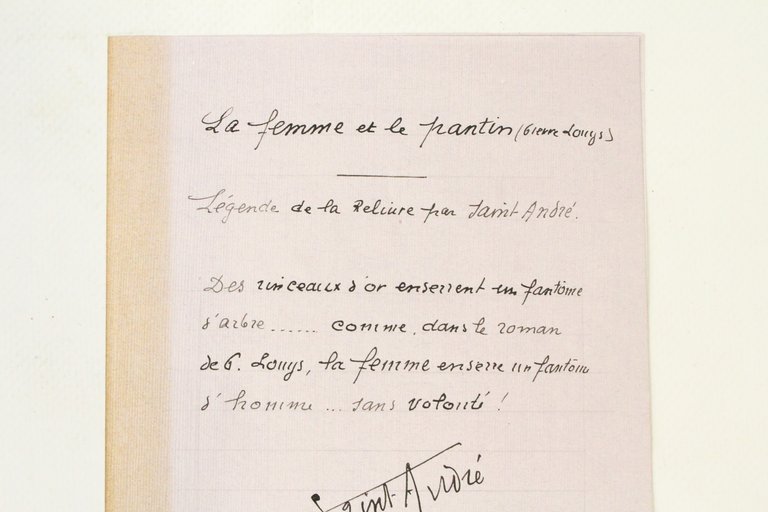 La femme et le pantin (Pierre Louys)
Légende de la Reliure par Saint André.
Des rinceaux d'or enserrent un fantôme
d'arbre ...... comme, dans le roman
de P. Louys, la femme enserre un fantôme
d'homme ... sans volonté !
Saint André